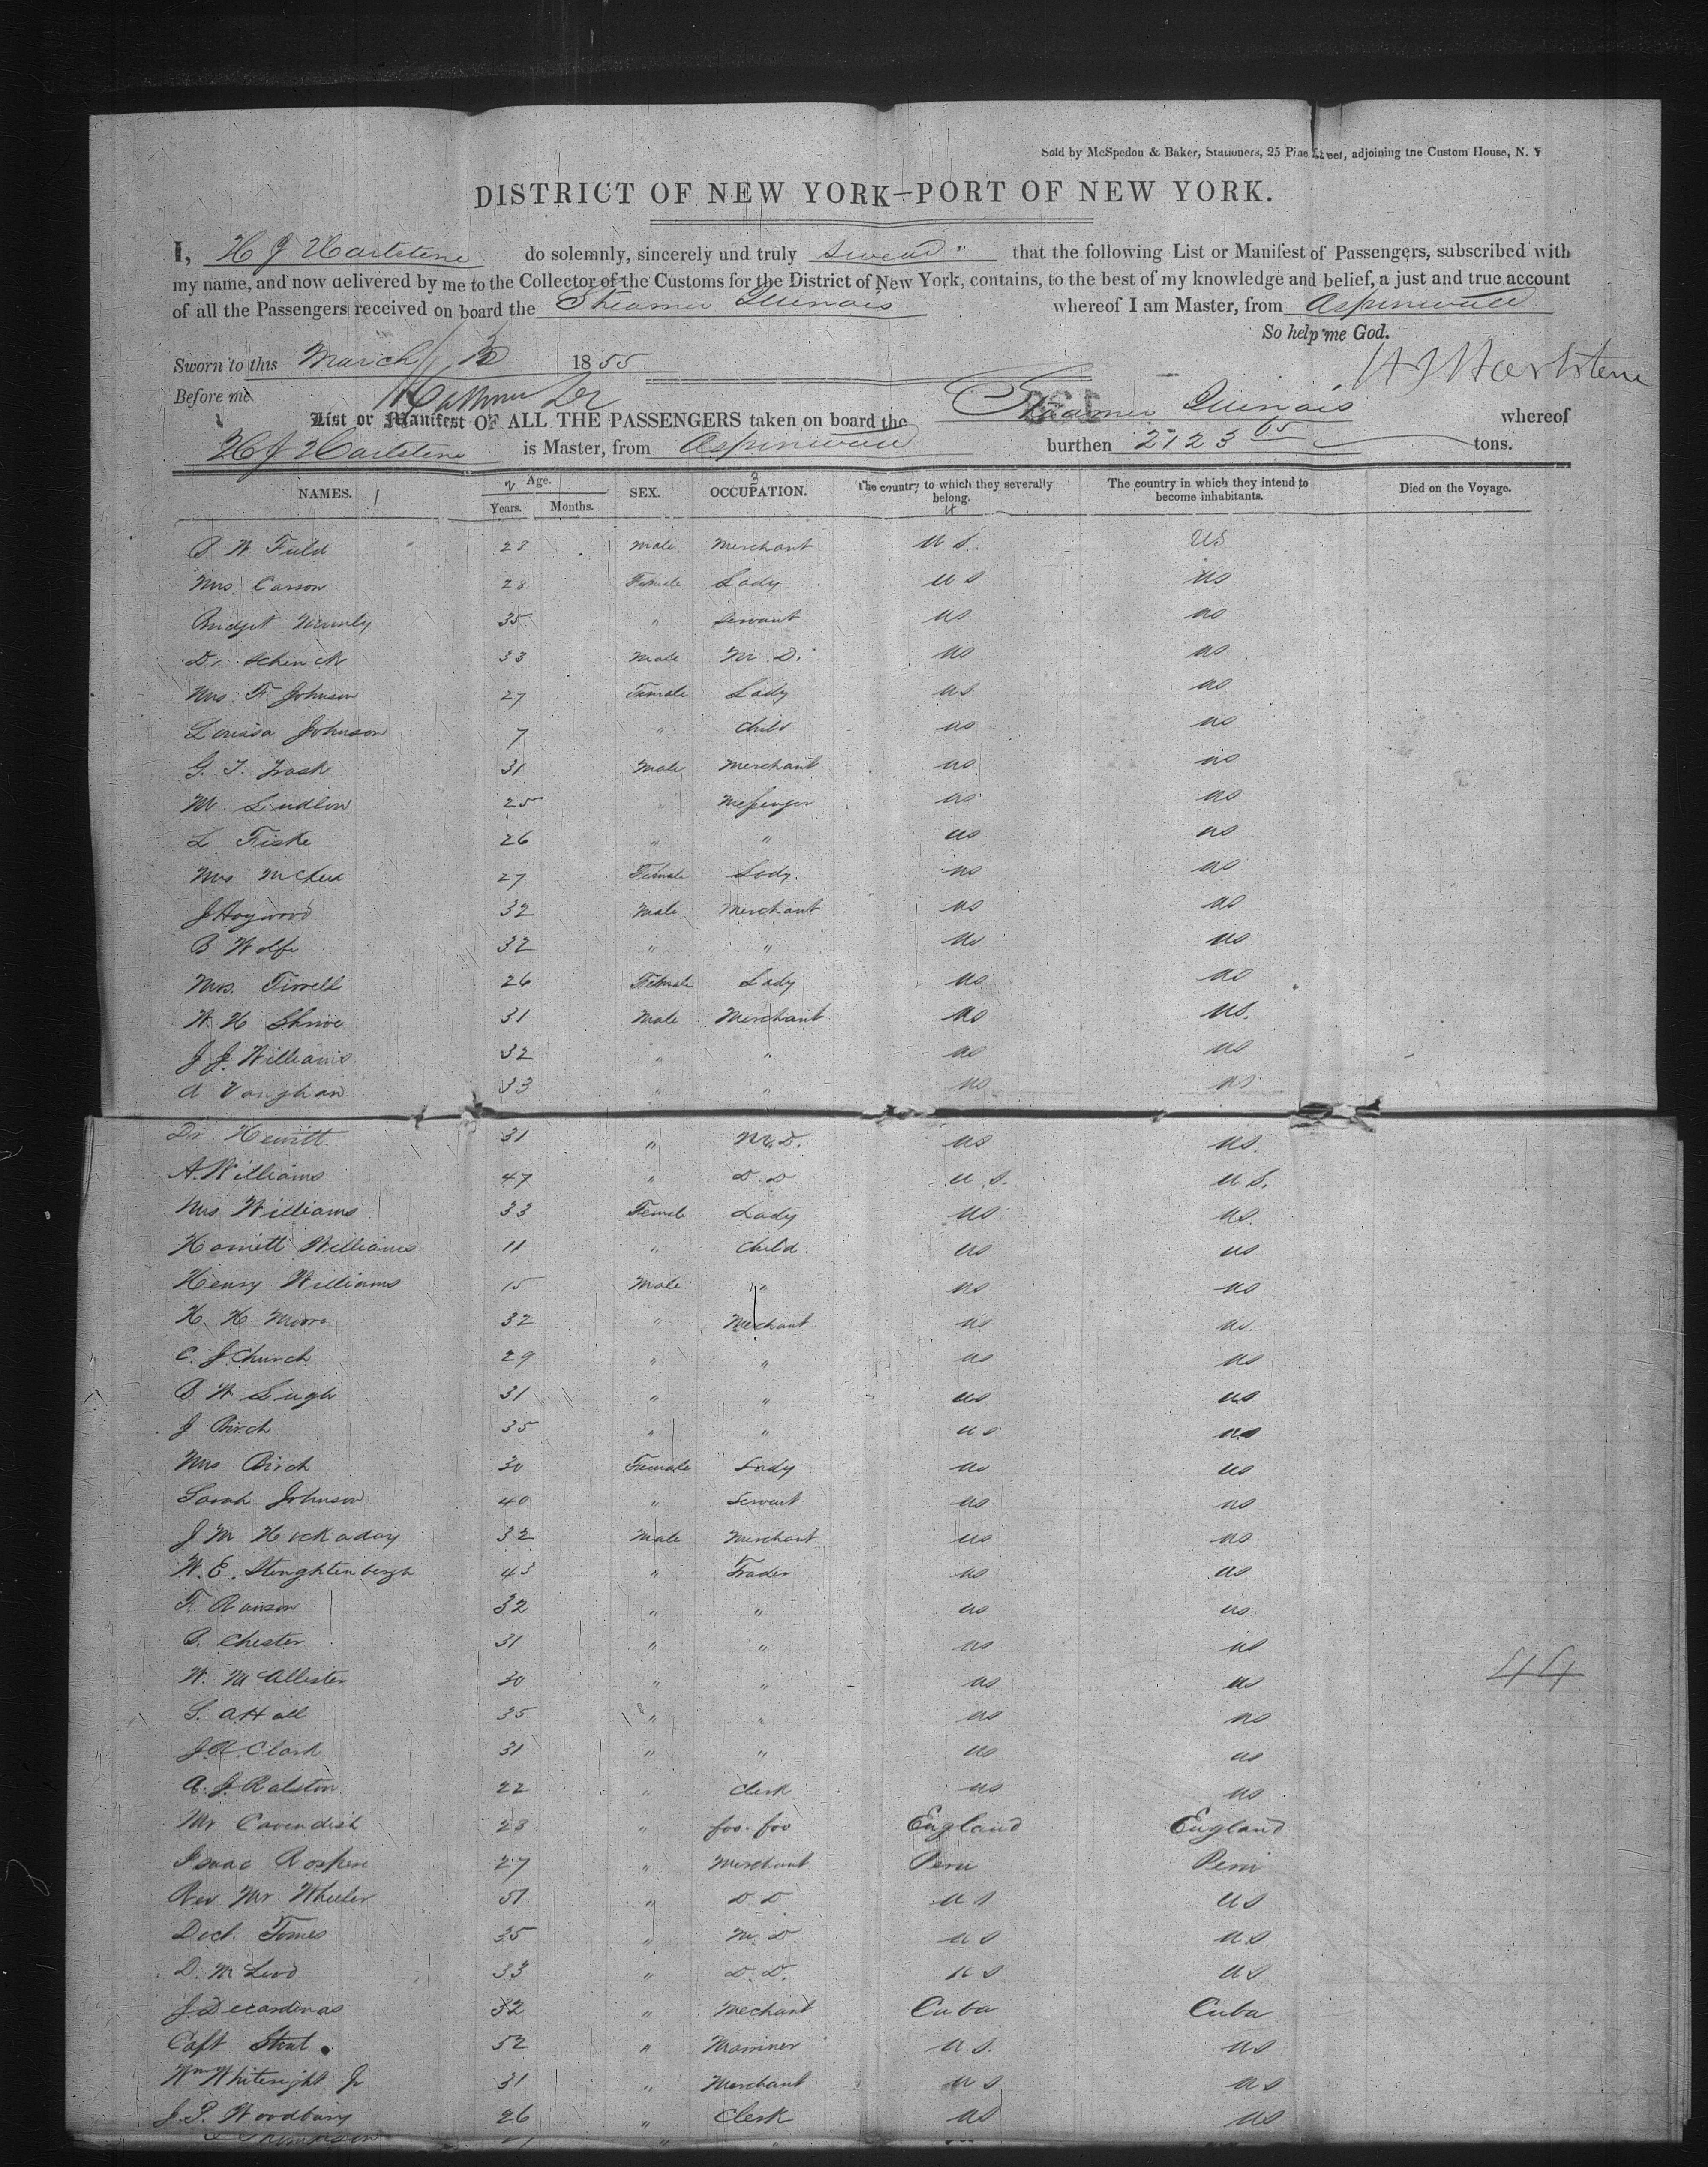 Sold by McSpedon & Baker, Stationers, 25 Pine Street, adjoining the Custom House, N. Y
DISTRICT OF NEW YORK—PORT OF NEW YORK.
I, H J Hartstene do solemnly, sincerely and truly swear that the following List or Manifest of Passengers, subscribed with
my name, and now delivered by me to the Collector of the Customs for the District of New York, contains, to the best of my knowledge and belief, a just and true account
of all the Passengers received on board the Steamer Illinois whereof I am Master, from Aspinwall
So help me God.
Sworn to this March 1855 H J Hartstene
Before me
List or Manifest OF ALL THE PASSENGERS taken on board the Steamer Illinois whereof
H J Hartstene is Master, from Aspinwall burthen 2123 65 tons.
NAMES. 1 2 Age. Years. Months. SEX. 3 OCCUPATION. The country to which they severally belong. 4 The country in which they intend to become inhabitants. Died on the Voyage.
B W Field 28 Male Merchant U S. US
Mrs. Carson 28 Female Lady US US
Bridget 35 " Servant US US
Dr. Schenck 33 Male M.D. US US
Mrs. F Johnson 27 Female Lady US US
Louisa Johnson 7 " Child US US
G. T. Trask 31 Male Merchant US US
M. Ludlow 25 " Messenger US US
L Fiske 26 " " US US
Mrs 27 Female Lady. US US
J Haywood 32 Male Merchant US US
B Wolfe 32 " " US US
Mrs. Tirrell 26 Female Lady US US
W H Shrive 31 Male Merchant US US.
J J. Williams 32 " " US US
A Vaughan 33 " " US US
Dr Hewitt 31 " M.D. US US.
A. Williams 47 " D.D U.S. U S.
Mrs Williams 33 Female Lady US US.
Harriett Williams 11 " Child US US
Henry Williams 15 Male " US US
H. H Moore 32 " Merchant US US.
C. J Church 29 " " US US
B W Leigh 31 " " US US
J Birch 35 " " US US
Mrs Birch 30 Female Lady US US
Sarah Johnson 40 " Servant US US
J M Hockaday 32 Male Merchant US US
W. E. Stoughtenburgh 43 " Trader US US
F. Ranson 32 " " US US
B. Chester 31 " " US US
W. McAllister 30 " " US US 44
S. A Hall 35 " " US US
J. R. Clark 31 " " US US
A. J. Ralston 22 " Clerk US US
Mr Cavendish 28 " foo-foo England England
Isaac 27 " Merchant Peru Peru
Rev Mr Wheeler 51 " D D U S US
Doct. Tomes 35 " M. D. US US
D. McLeod 33 " D. D. US US
J. Decardenas 32 " Mechant Cuba Cuba
Capt Stout 52 " Marriner U S. US
Wm Whitewright Jr 31 " Merchant US US
J. P. Woodbury 26 " Clerk US US
Thompson